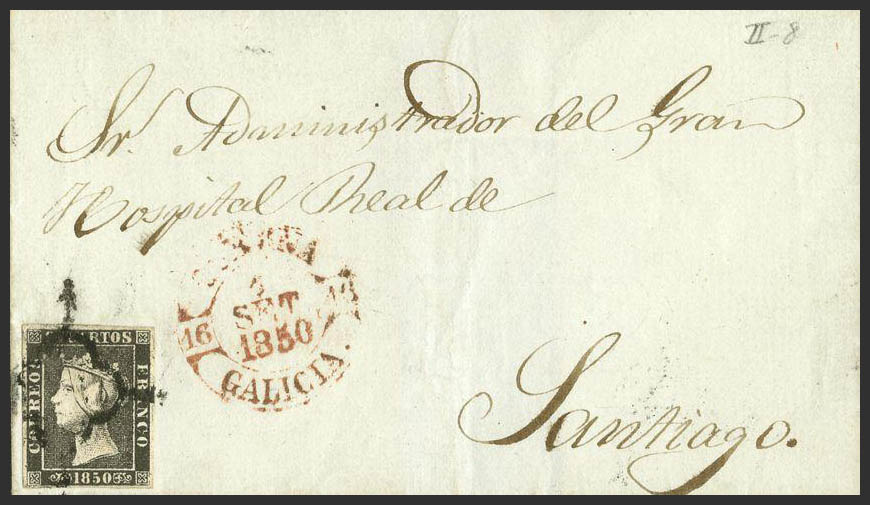 II-8
Sr. Administrador del Gran
Hospital Real de
SET
1850
16
GALICIA.
Santiago.
CORREOS
FRANCO
1850